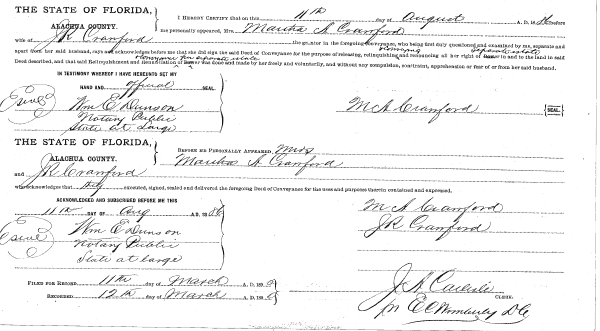 THE STATE OF FLORIDA,
ALACHUA COUNTY.
I HEREBY CERTIFY that on this 11th day of August A. D. 18 before
me personally appeared, Mrs. Martha A Cranford
wife of J R Cranford the grantor in the foregoing conveyance, who being first duly questioned and examined by me, separate and
apart from her said husband, says and acknowledges before me that she did sign the said Deed of Conveyance for the purpose of releasing, relinquishing and renouncing all her right of and to the land in said
Deed described, and that said Relinquishment and Renunciation of was done and made by her freely and voluntarily, and without any compulsion, constraint, apprehension or fear of or from her said husband.
IN TESTIMONY WHEREOF I HAVE HEREUNTO SET MY
HAND AND official SEAL.
Wm E Dunson
Notary Public
State at Large
M A Cranford {SEAL.}
THE STATE OF FLORIDA,
ALACHUA COUNTY.
BEFORE ME PERSONALLY APPEARED, Mrs
Martha A. Cranford
and J R Cranford
who acknowledge that they executed, signed, sealed and delivered the foregoing Deed of Conveyance for the uses and purposes therein contained and expressed.
ACKNOWLEDGED AND SUBSCRIBED BEFORE ME THIS
11th DAY OF Aug A.D. 18
Wm E Dunson
Notary Public
State at large
M A Cranford
J R Cranford
FILED FOR RECORD 11th day of March A. D. 189
RECORDED 12th day of March A. D. 189
J A Carlisle CLERK.
pr E C Wimberly D C